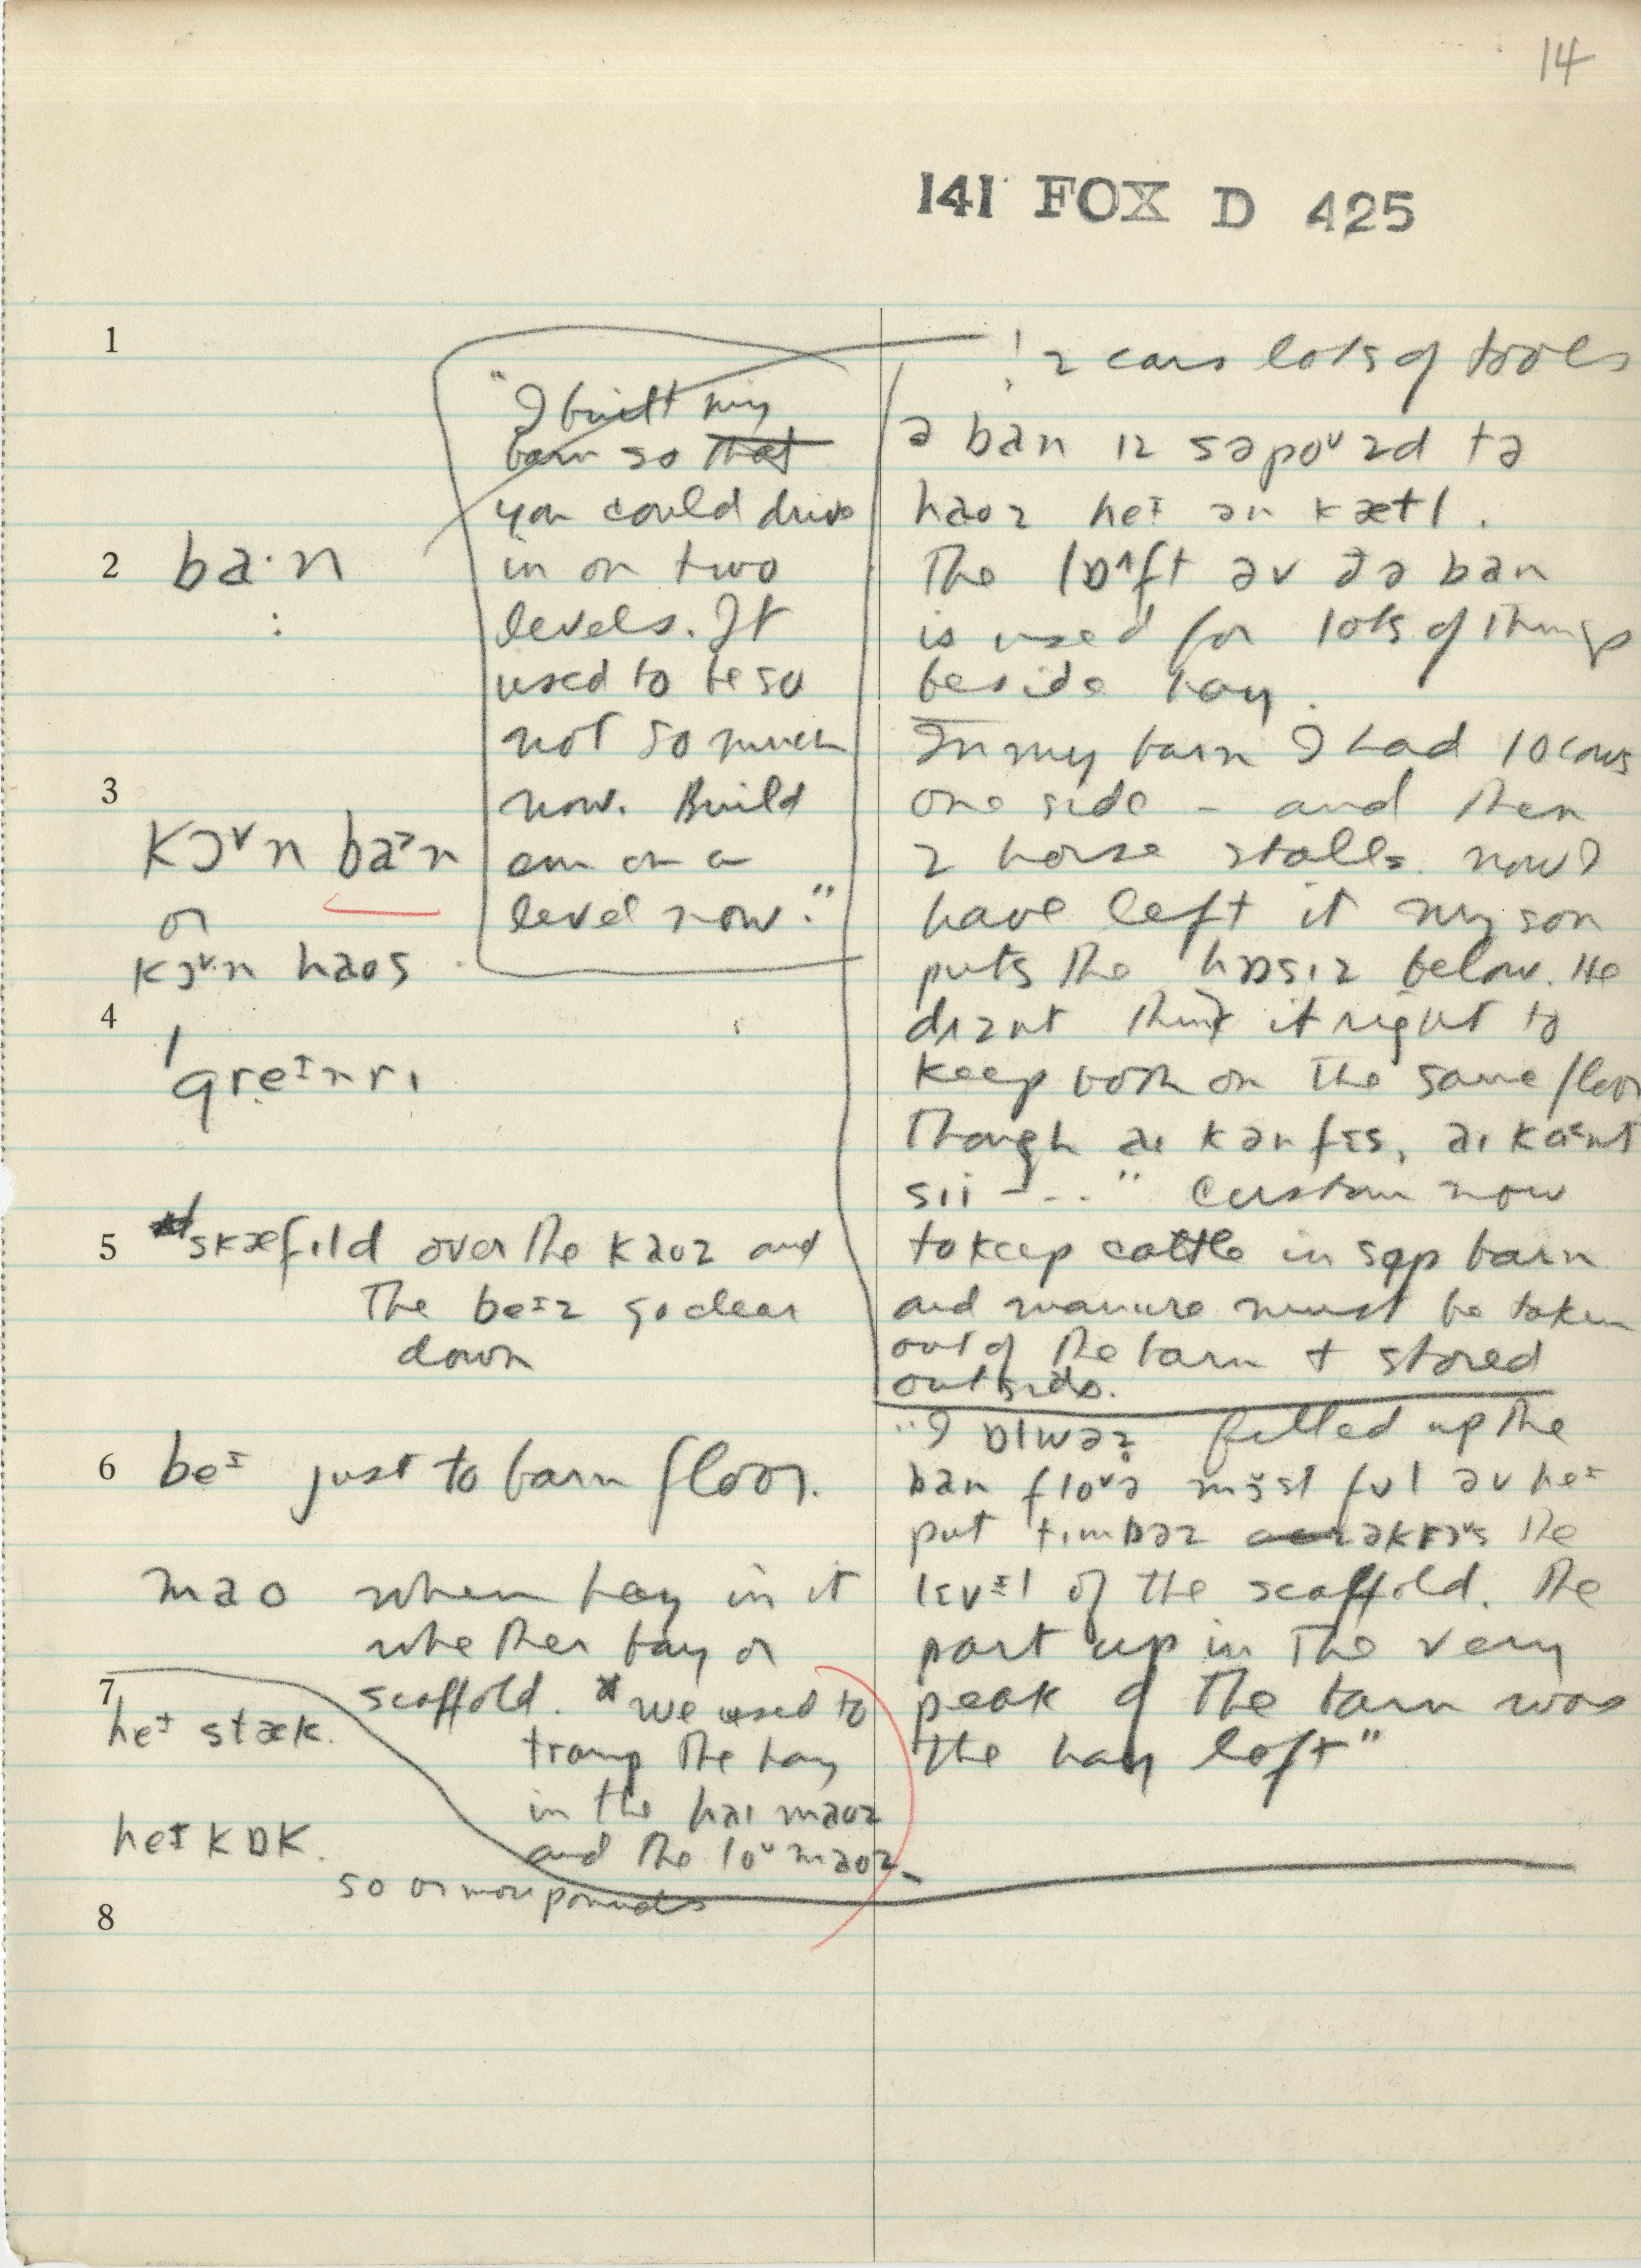 14
141 FOX D 425
1
"I built my
barn so that
you could drive
in on two
levels. It
used to be so
not so much
now. Build
em on a
level now."
2 ba·n
:
3
kɔᵛn baᵓn
or
kɔᵛ·n haos
4
ˈgreᴵnrɪ
5 skæfɪld over the kaoz and
the beᴵz go clear
down
6 beᴵ just to barn floor.
mao when hay in it
whether bay or
scaffold. * we used to
tramp the hay
in the haɪ maoz
and the loᵘ maoz
7
heᴵ stæk.
heᴵ kɒk.
50 or more pounds
8
! 2 cars lots of tools
ə ban ɪz səpoᵛzd tə
haoz heᴵ ən kætl.
The lɒ^ft əv ðə ban
is used for lots of things
beside hay.
In my barn I had 10 cows
one side - and then
2 horse stalls now I
have left it my son
puts the hɒsɪz below. He
dɪznt think it right to
keep both on the same floor
though aɪ kənfɛs, aɪ kaᵋnt
sii - .." Custom now
to keep cattle in sep barn
and manure must be taken
out of the barn + stored
outside.
"I ɒlwəz filled up the
ban floᵛə mɜst fʊl əv heᴵ
put tɪmbəz əkrɔᵛs the
lɛvᵻl of the scaffold. The
part up in the very
peak of the barn was
the hay loft"